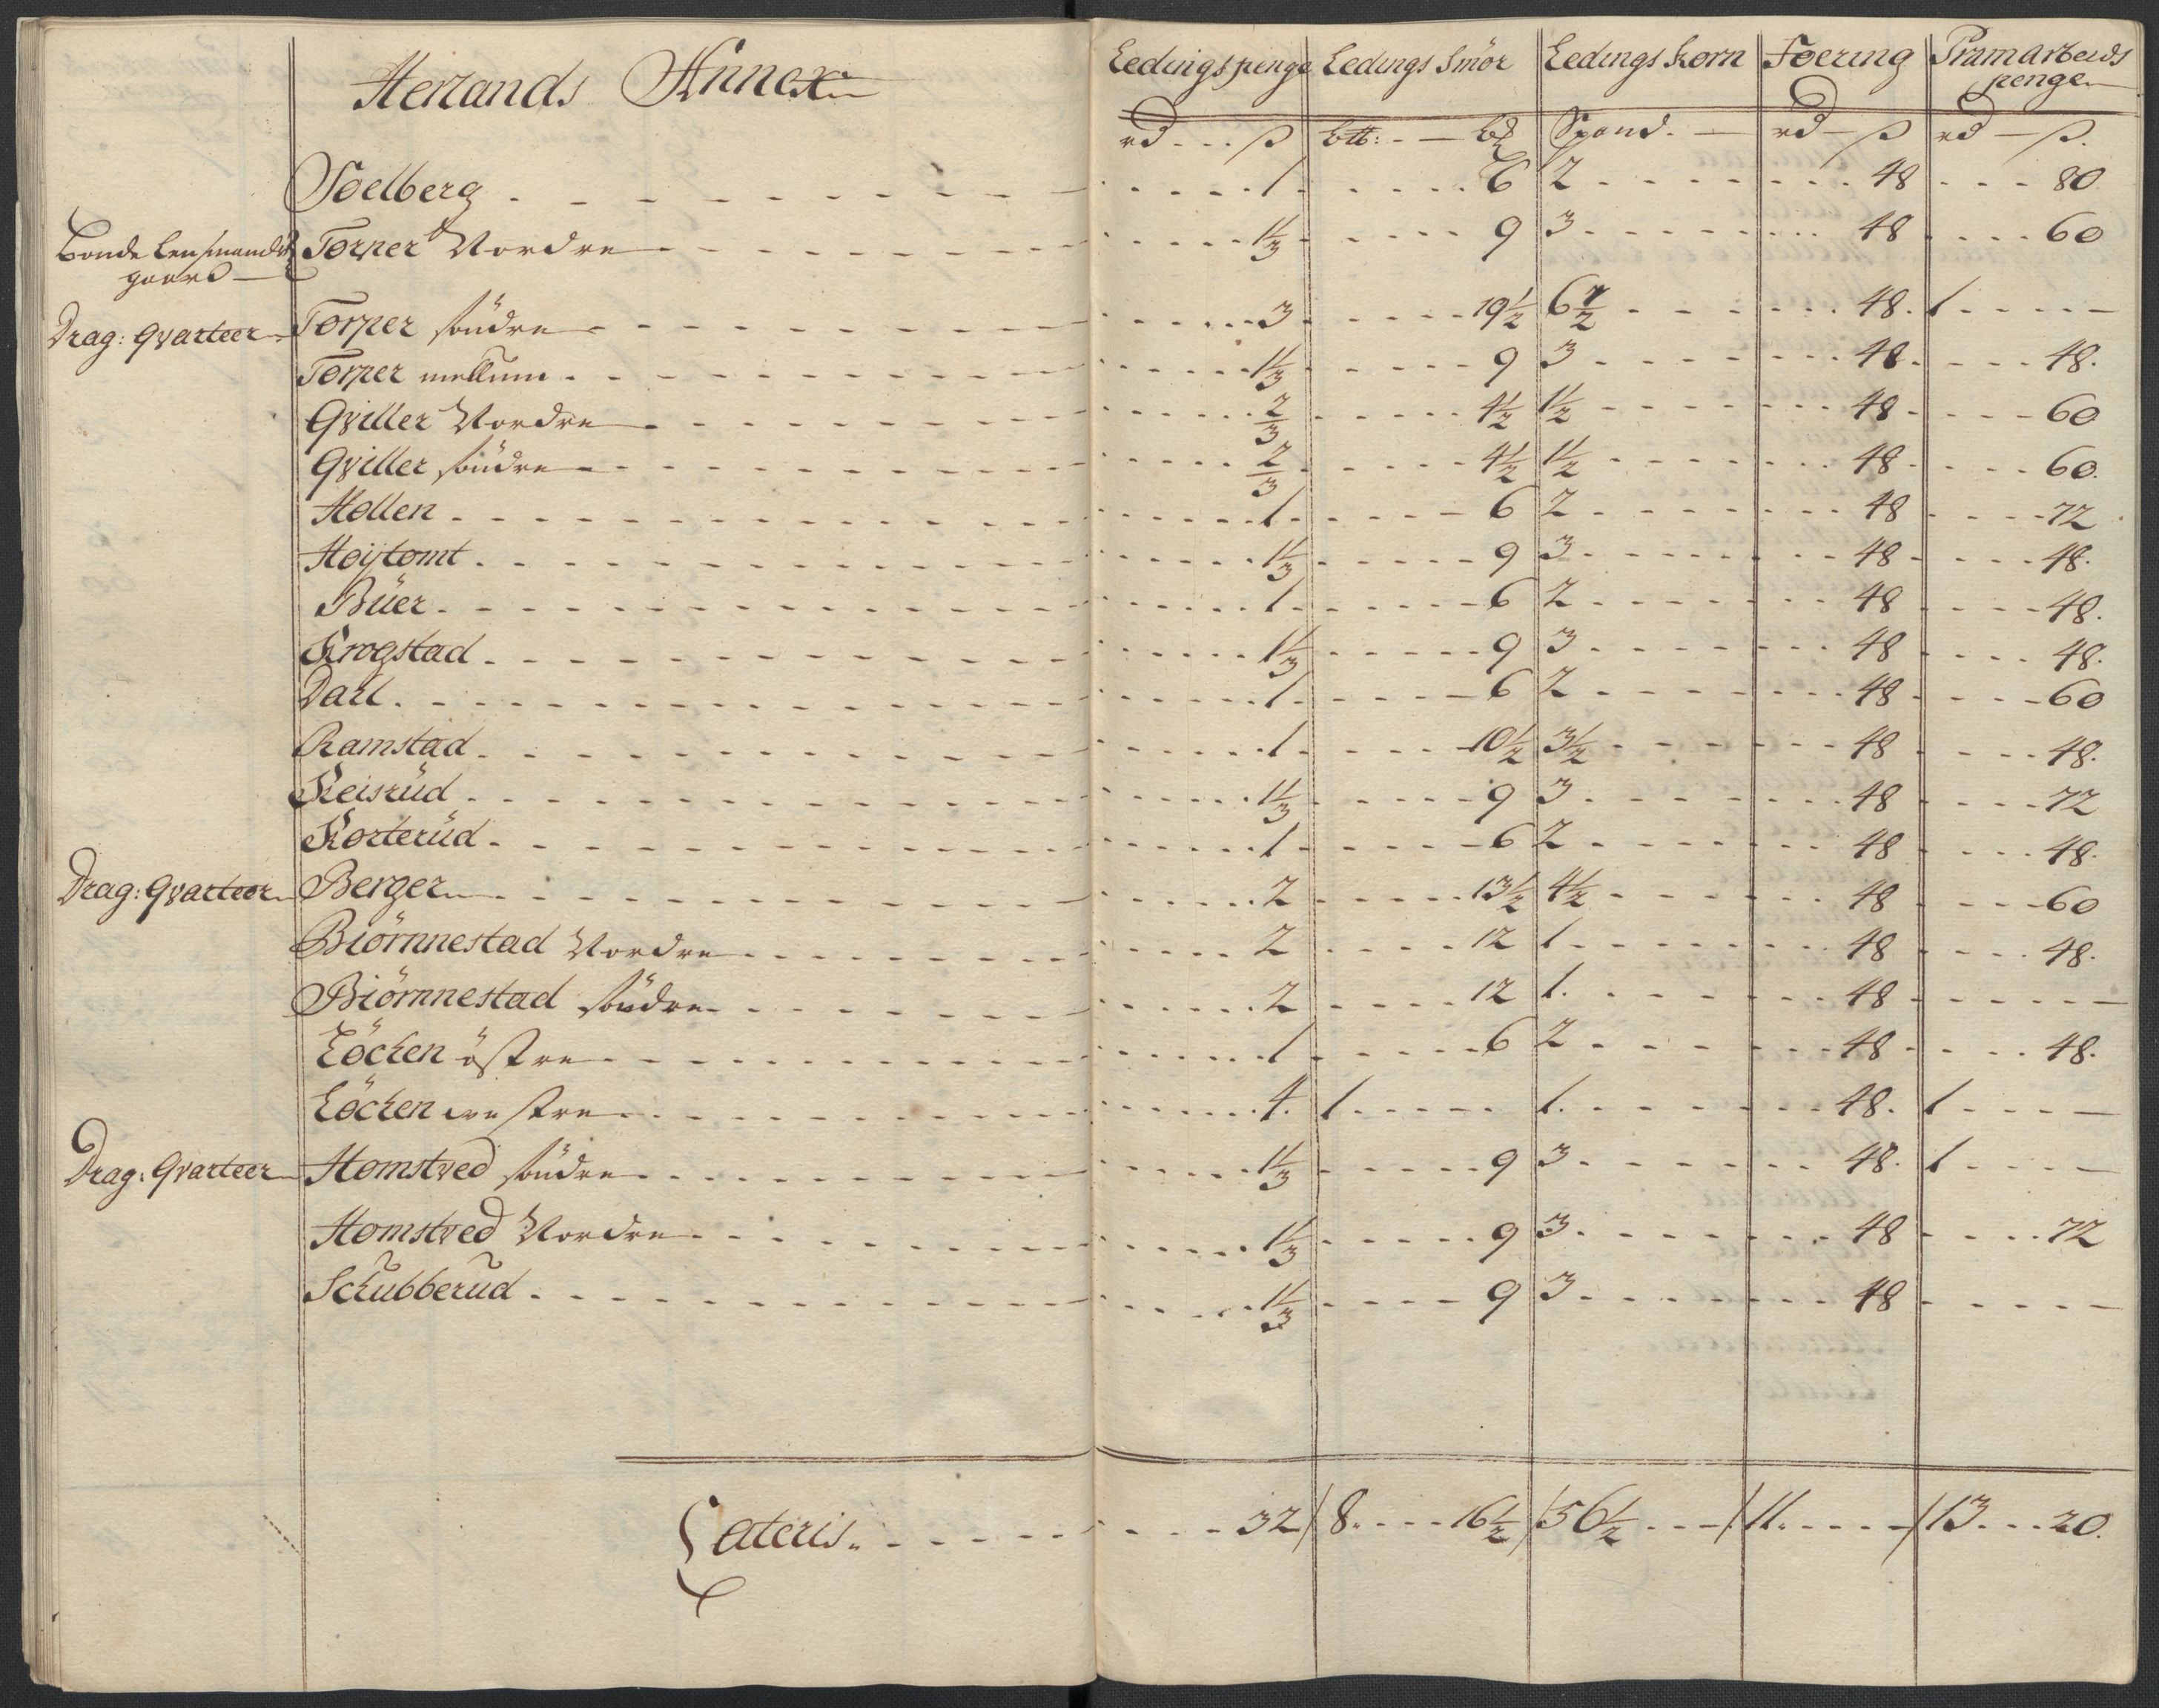 Herlands Annex
Ledingspenge Ledings Smör Ledings Korn Foering Pramarbeids
penge
rd - - - ß btt: - — bd Spand. — rd — ß rd — ß.
Soelberg 1 6 2 48 80
Bonde Lensmands Torper Nordre 1⅓ 9 3 48 60
gaard
Drag: Qvarteer Torper söndre 3 19½ 6½ 48. 1 —
Torper mellum 1⅓ 9 3 48 48.
Qviller Nordre ⅔ 4½ 1½ 48 60
Qviller söndre ⅔ 4½ 1½ 48 60.
Hollen 1 6 2 48 72
Hoijtomt 1⅓ 9 3 48 48.
Büer 1 6 2 48 48.
Krogstad 1⅓ 9 3 48 48.
Darl 1 6 2 48 60
Ramstad 1 10½ 3½ 48 48.
Keisrüd 1⅓ 9 3 48 72
Korterüd 1 6 2 48 48.
Drag: Qvarteer Berger 2 13½ 4½ 48 60
Biörnnestad Nordre 2 12 1 48 48.
Biörnnestad söndre 2 12 1. 48 —
Löcken östre 1 6 2 48 48.
Löcken westre 4. 1 1. 48. 1 —
Drag: Qvarteer Homstved söndre 1⅓ 9 3 48. 1 —
Homstved Nordre 1⅓ 9 3 48 72
Schubberud 1⅓ 9 3 48 —
Lateris. 32 / 8. 16½ / 56½ / 11. / 13 20.